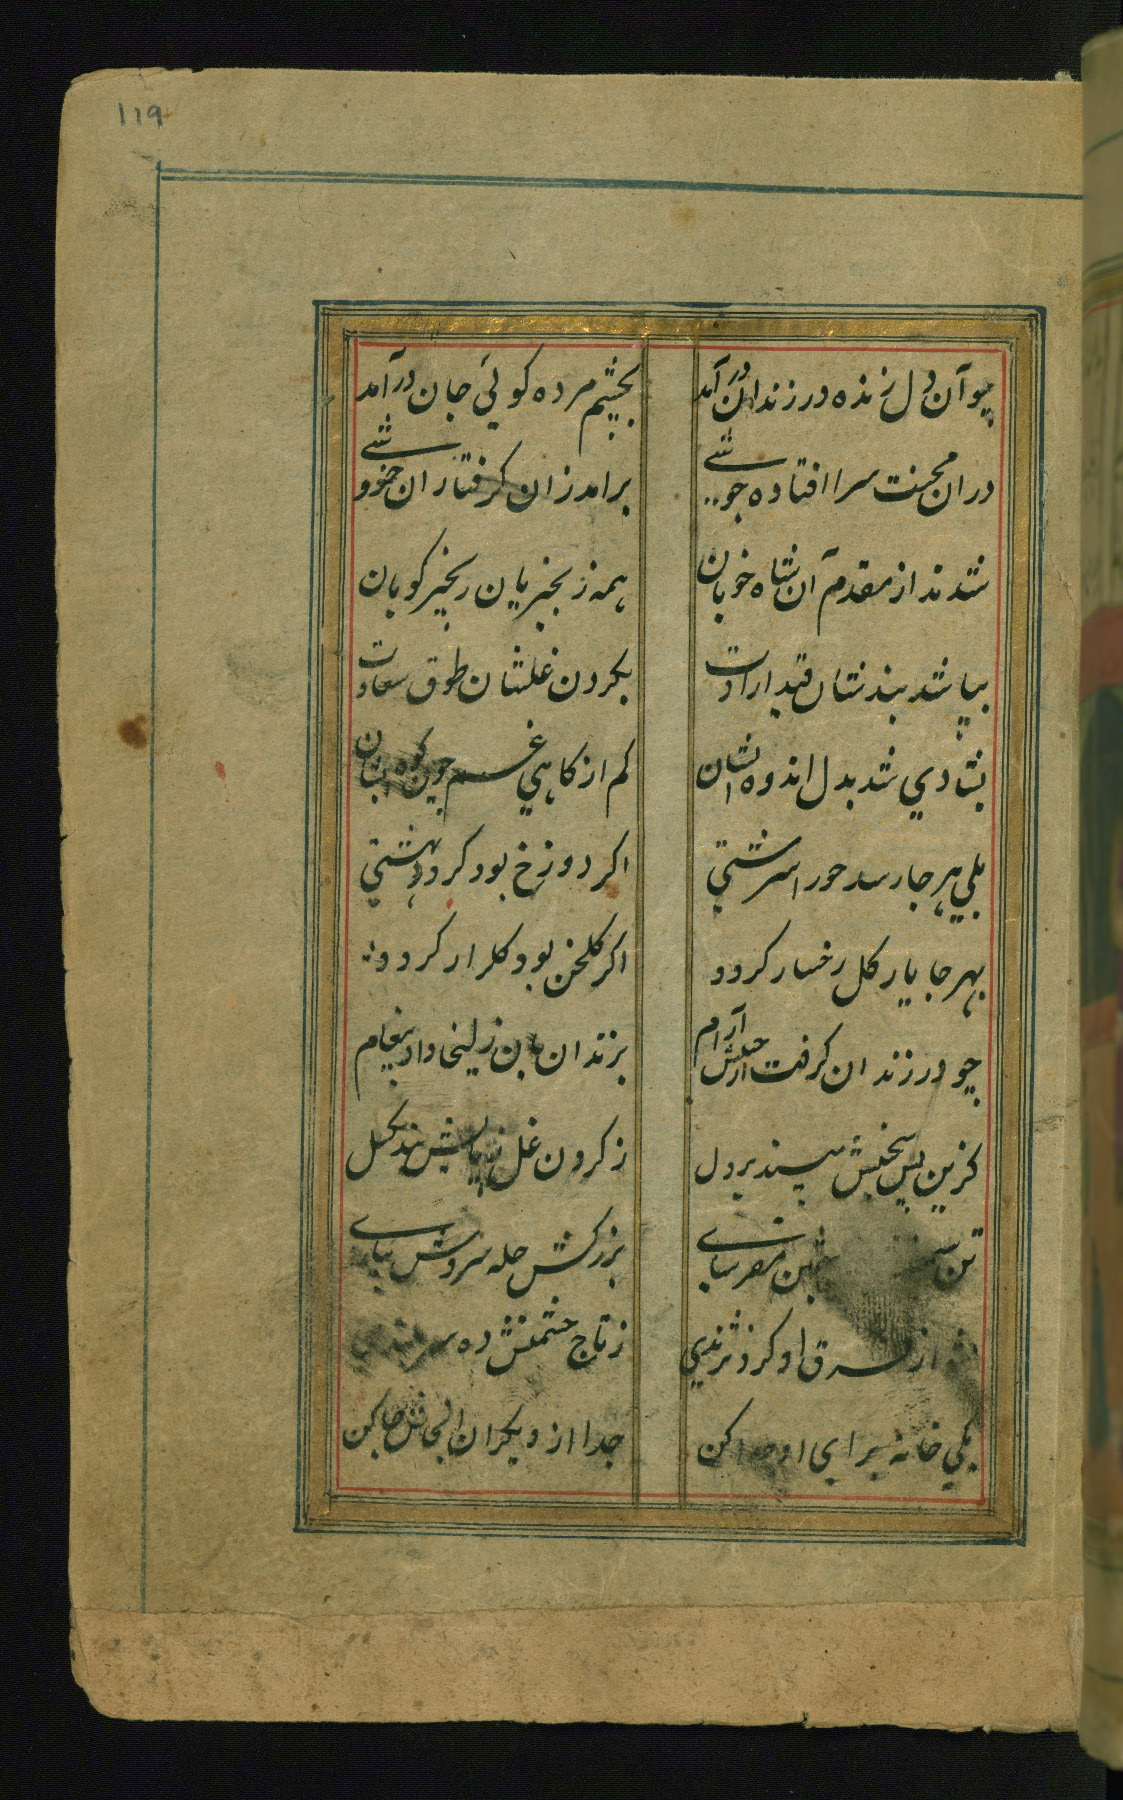 119
چو آن دل زنده در زندان در آمد
بجشم مرده کوئی جان در آمد
دران محنت سرا افتاده جوشے
برامد زان کرفتاران خروشے
شدند از مقدم آن شاه خوبان
همه زنجیریان زنجیر کوبان
بپا شد بند شان قید ارادت
بکردن غلشان طوق سعادت
بشادی شد بدل اندوه ایشان
کم از کاهی غم چون کوه ایشان
بلی هر جا رسد حورا سرشتی
اکر دوزخ بود کردد بهشتی
بهر جا یار کل رخسار کردد
اکر کلخن بود کلزار کردد
چو در زندان کرفت از جنبش آرام
بزندان بان زلیخا داد پیغام
کزین پس محنتش مپسند بر دل
ز کردن غل ز پایش بند بکسل
تن
بزرکش حله سروش بیاراے
از فرق او کرد نژندی
ز تاج حشمتش ده سر بلندی
یکی خانه برای او جدا کن
جدا از دیکران آنجاش جا کن